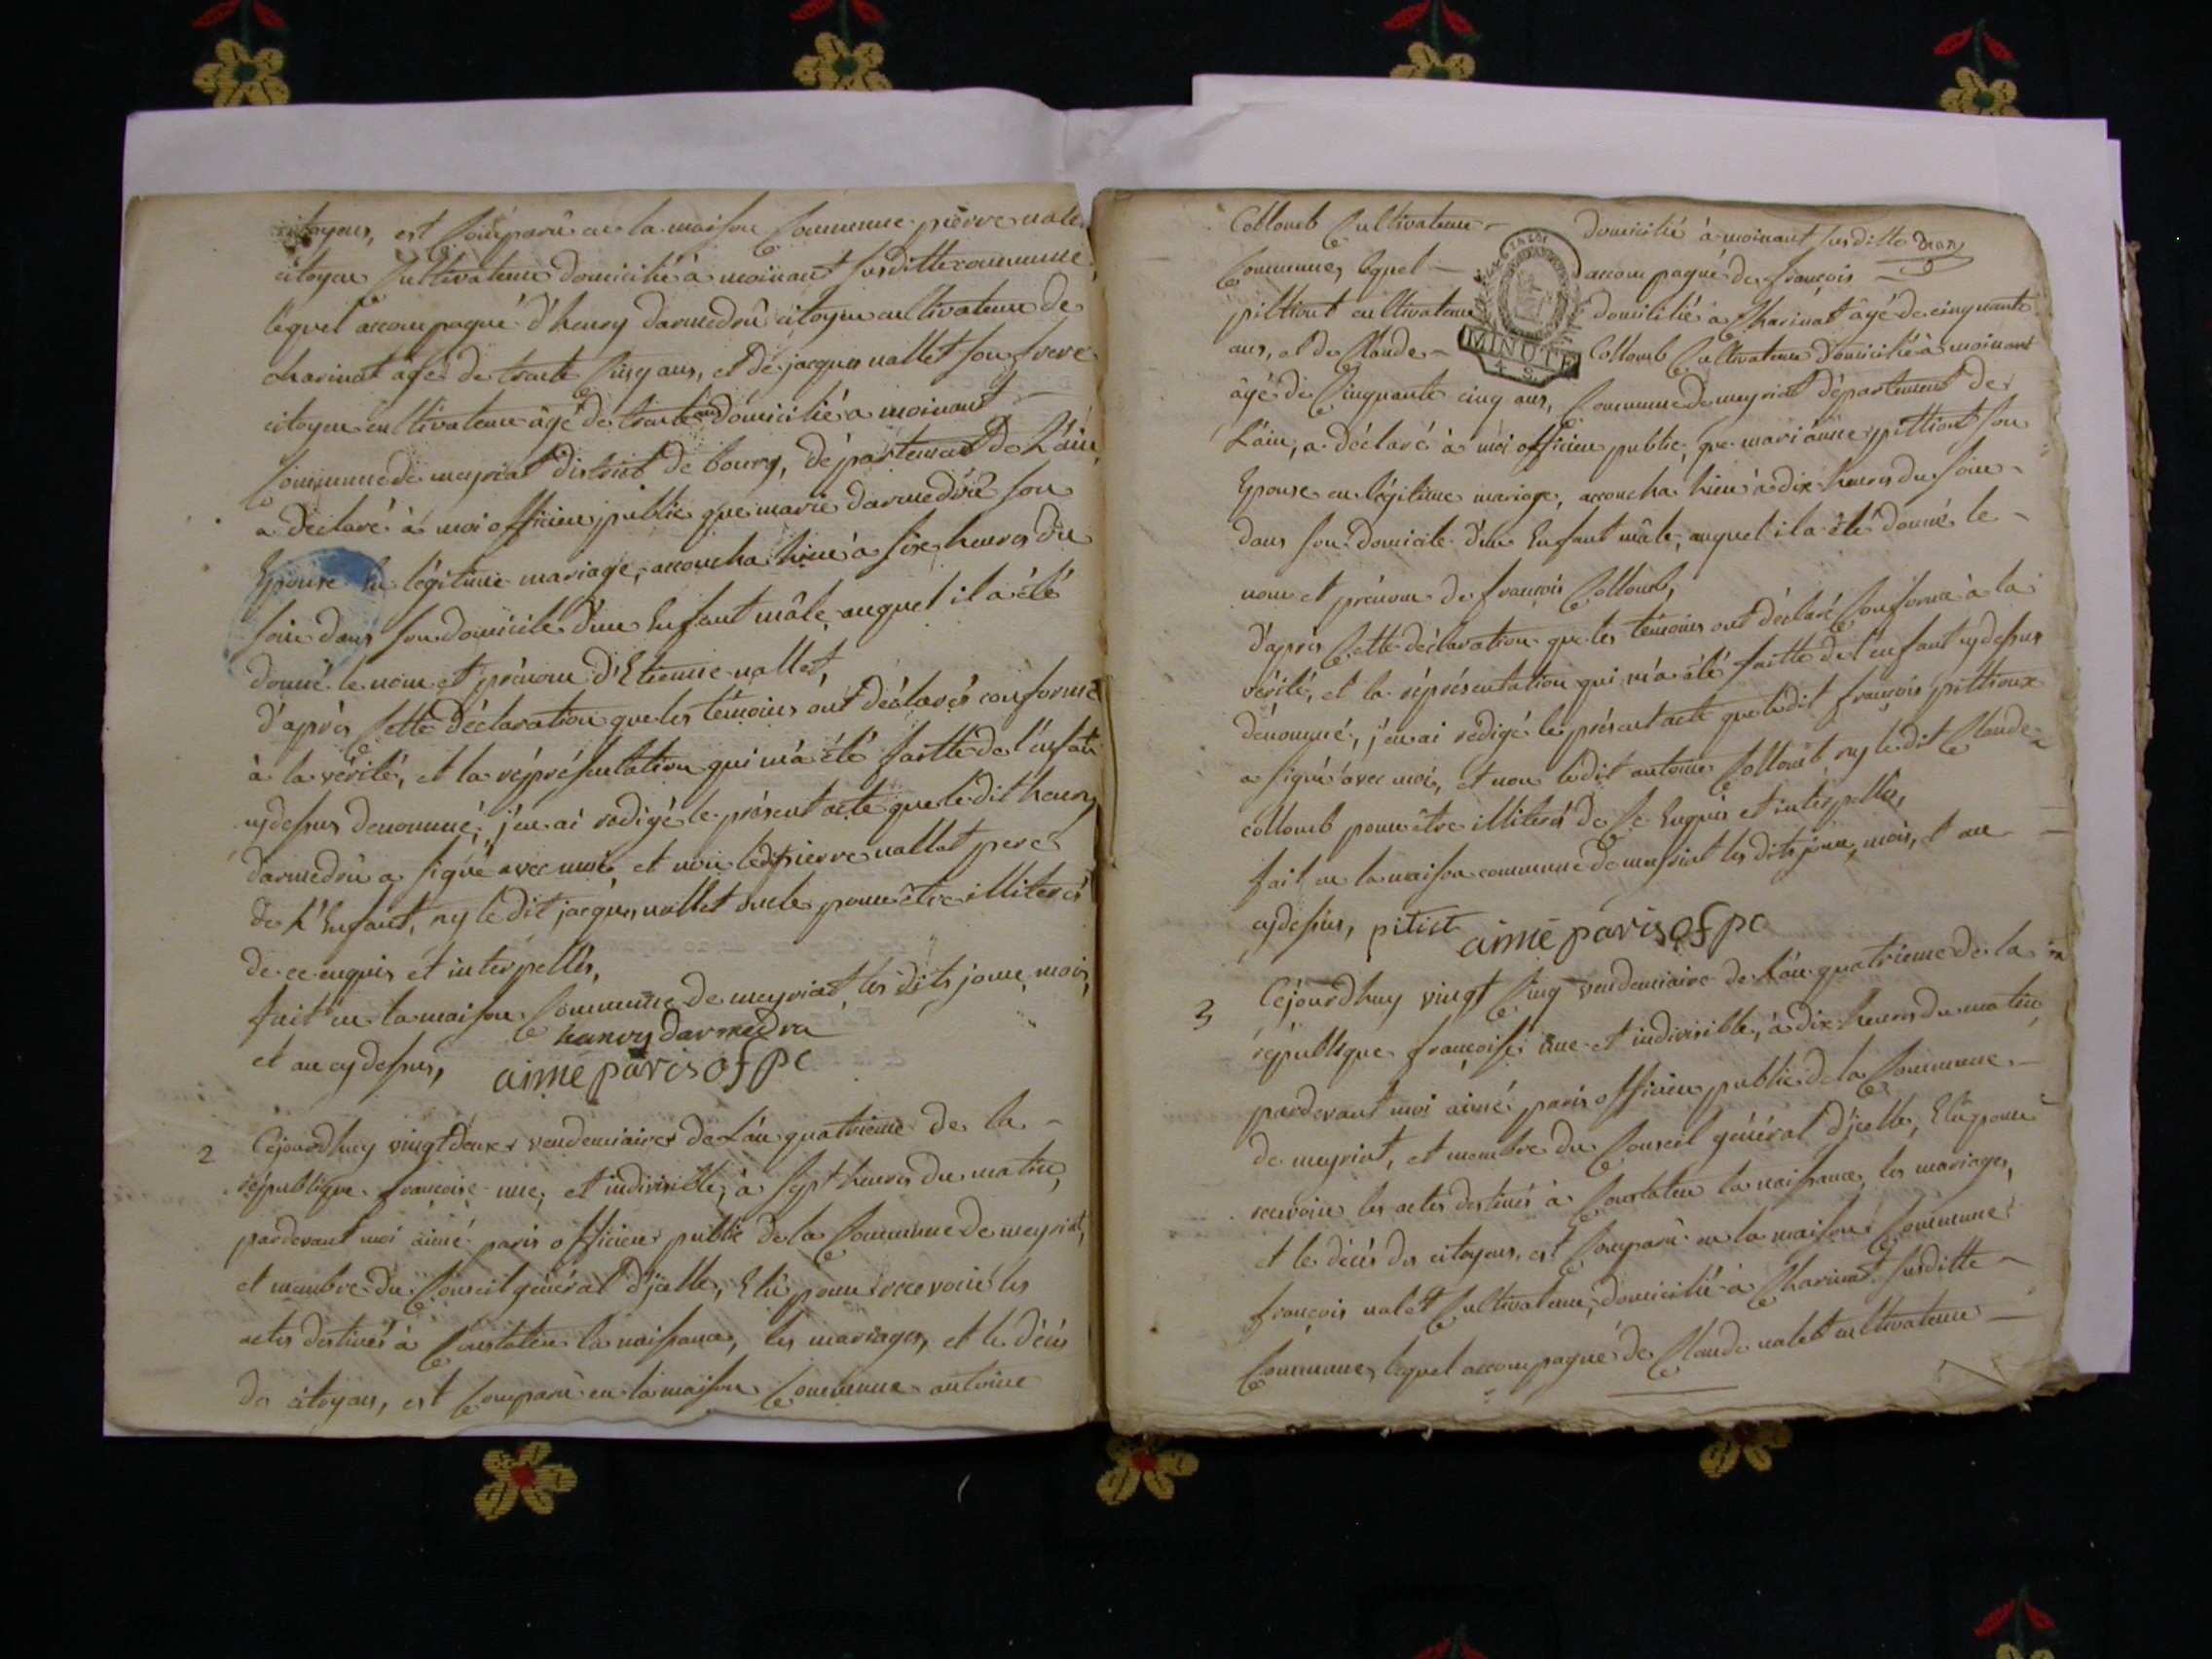 citoyens, est Comparû en la maison Commune pierre valet
citoyen Cultivateur domicilié à moinant susditte commune,
lequel accompagné d'henry darmedru citoyen cultivateur de
charinat agé de trante Cinq ans, et de jacques vallet son frere
citoyen cultivateur âgé de trante ans domicilié a moinant
Commune de meyriat district de bourg, département De L'ain,
a déclaré à moi officier public que marie darmedru son
Epouse en légitime mariage, accoucha hier à six heures du
soir dans son domicile d'un Enfant mâle auquel il a été
donné le nom et prénom d'Etienne vallet,
d'après Cette déclaration que les témoins ont déclarés conforme
à la vérité, et la représentation qui m'a été faitte de l'enfant
cydessus denommé, j'en ai redigé le présent acte que le dit henry
darmedru a signé avec moi, et non ledit pierre vallet pere
de L'Enfant, ny le dit jacques vallet oncle pour être illiterés
de ce enquis et interpellés,
fait en la maison Commune de meyriat, les dits jour, mois,
et an cydessus, henry darmedru
aimé paris of pc
2 Cejourdhuy vingt deux vendemiaire de L'an quatrieme de la
république françoise une, et indivisible, à sept heures du matin,
pardevant moi aimé paris officier public de la Commune de meyriat,
et membre du Conseil général d'jcelle, Elû pour recevoir les
actes destinés à Constater la naissance, les mariages, et le décès
des citoyens, est Comparû en la maison Commune antoine
Collomb Cultivateur domicilié à moinant susditte
Commune, lequel accompagné de françois
pittiout cultivateur domicilié à Charinat âgé de cinquante
ans, et de Claude Collomb Cultivateur domicilié à moinant
MINUTE
4. S.
âgé de Cinquante cinq ans, Commune de meyriat département de
L'ain, a déclaré à moi officier public, que marianne pittiout son
Epouse en légitime mariage, accoucha hier à dix heures du soir
dans son domicile d'un Enfant mâle, auquel il a été donné le
nom et prénom de françois Collomb,
d'après Cette déclaration que les témoins ont déclaré Conforme à la
vérité, et la représentation qui m'a été faitte de l'enfant cydessus
dénommé, j'en ai redigé le présent acte que le dit françois pittioux
a signé avec moi, et non ledit antoine Collomb ny le dit Claude
collomb pour être illiterés de Ce Enquis et interpellés,
fait en la maison commune de meyriat les dits jour, mois, et an
cydessus, pitiot aimé paris of pc
3 Cejourdhuy vingt Cinq vendemiaire de L'an quatrieme de la
république françoise une et indivisible, à dix heures du matin,
pardevant moi aimé paris officier public de la Commune
de meyriat, et membre du Conseil général d'jcelle, Elû pour
recevoir les actes destinés à Constater la naissance, les mariages,
et le décès des citoyens, est Comparû en la maison Commune
françois valet Cultivateur, domicilié à Charinat susditte
Commune, lequel accompagné de Claude valet cultivateur